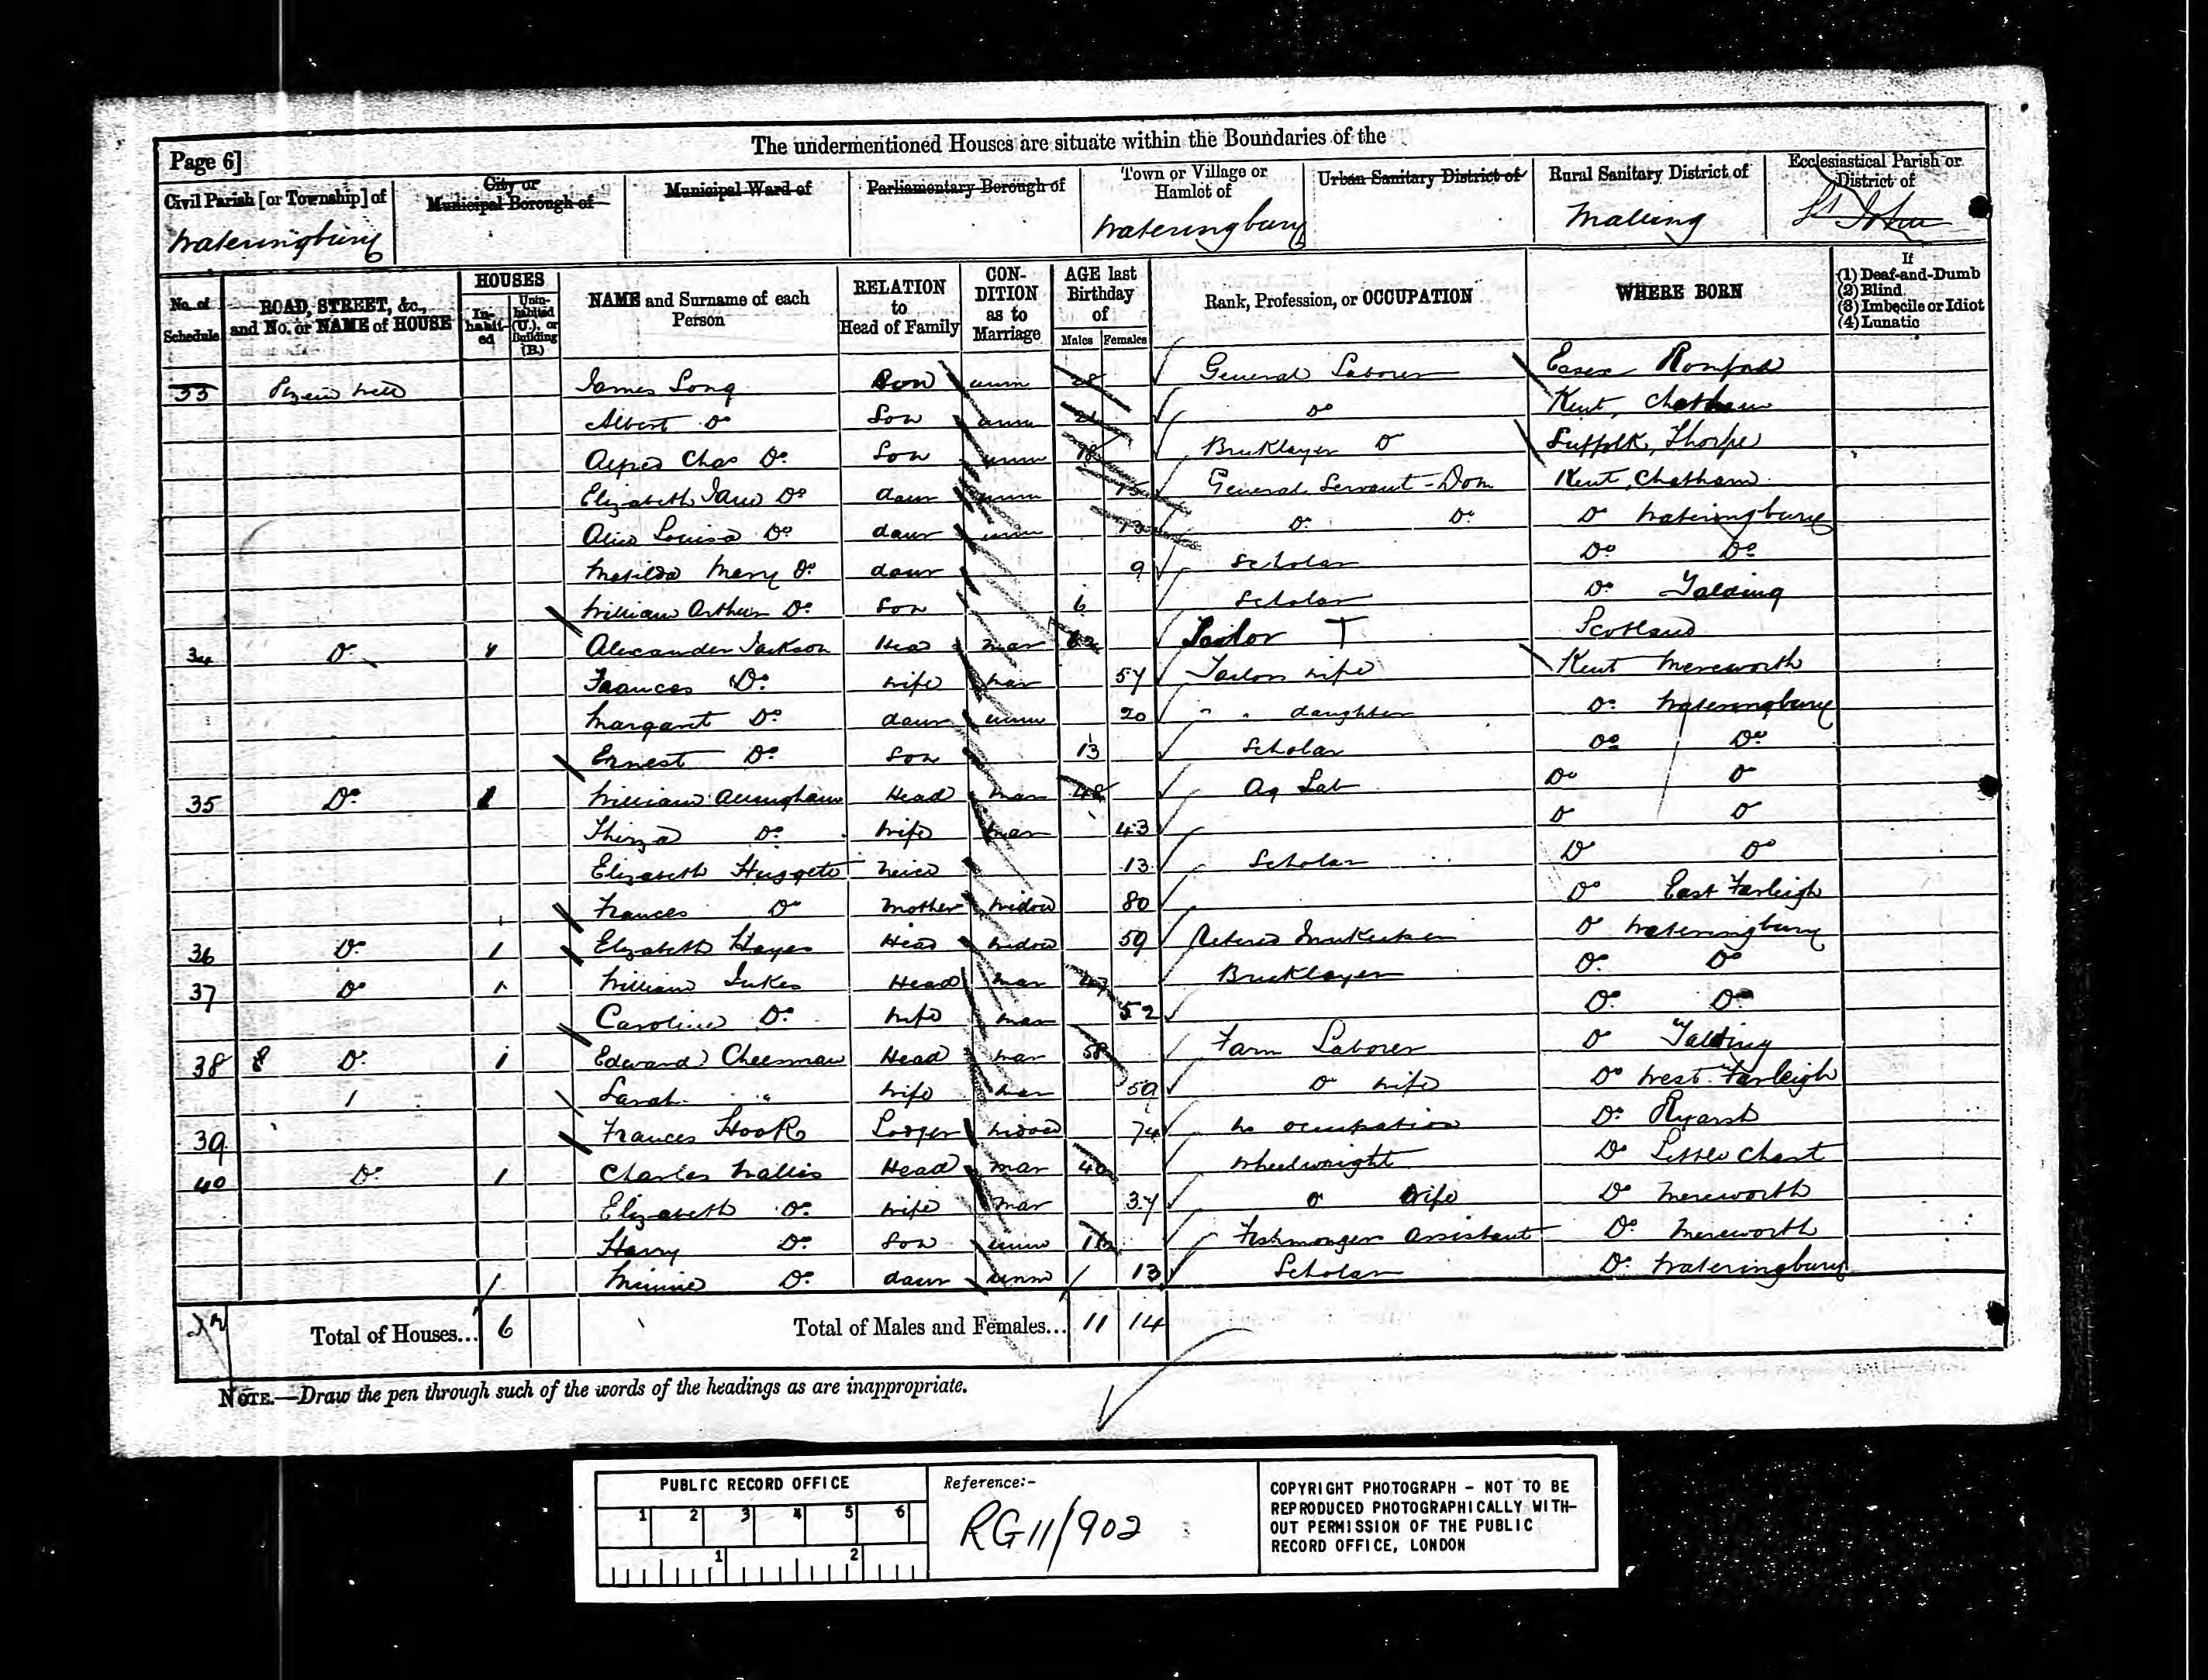 The undermentioned Houses are situate within the Boundaries of the
Page 6]
Civil Parish [or Township] of
City or Municipal Borough of
Municipal Ward of
Parliamentary Borough of
Town or Village or Hamlet of
Urban Sanitary District of
Rural Sanitary District of
Ecclesiastical Parish or District of
Wateringbury Wateringbury Malling St John
No. of Schedule
ROAD, STREET, &c., and No. or NAME of HOUSE
HOUSES
In-habit-ed
Unin-habited (U.), or Building (B.)
NAME and Surname of each Person
RELATION to Head of Family
CON-DITION as to Marriage
AGE last Birthday of
Males Females
Rank, Profession, or OCCUPATION
WHERE BORN
If
(1) Deaf-and-Dumb
(2) Blind
(3) Imbecile or Idiot
(4) Lunatic
33 James Long Son unm General Laborer Essex Romford
Albert Do Son unm Do Kent, Chatham
Alfred Chas Do Son unm 18 Bricklayer Do Suffolk, Thorpe
Elizabeth Jane Do daur unm 15 General Servant-Dom Kent, Chatham
Alice Louisa Do daur unm 13 Do Do Do Wateringbury
Matilda Mary Do daur 9 Scholar Do Do
William Arthur Do Son 6 Scholar Do Yalding
34 Do 1 Alexander Jackson Head mar 62 Tailor T Scotland
Frances Do wife mar 57 Tailors wife Kent Mereworth
Margaret Do daur unm 20 " " daughter Do Wateringbury
Ernest Do Son 13 Scholar Do Do
35 Do 1 William Head mar 48 Ag Lab Do Do
Thirza Do wife mar 43 Do Do
Elizabeth Huggett Neice 13 Scholar Do Do
Frances Do Mother widow 80 Do East Farleigh
36 Do 1 Elizabeth Hayes Head widow 59 Retired Innkeeper Do Wateringbury
37 Do 1 William Jukes Head mar Bricklayer Do Do
Caroline Do wife mar 52 Do Do
38 Do 1 Edward Cheesman Head mar 58 Farm Laborer Do Yalding
Sarah " wife mar 59 Do wife Do West Farleigh
39 Frances Hook Lodger widow 74 No occupation Do Ryarsh
40 Do 1 Charles Wallis Head mar 40 Wheelwright Do Little Chart
Elizabeth Do wife mar 37 Do Wife Do Mereworth
Harry Do Son unm 16 Fishmonger Assistant Do Mereworth
Minnie Do daur unm 13 Scholar Do Wateringbury
Total of Houses... 6 Total of Males and Females... 11 14
NOTE.—Draw the pen through such of the words of the headings as are inappropriate.
PUBLIC RECORD OFFICE
1 2 3 4 5 6
1 2
Reference:-
RG11/902
COPYRIGHT PHOTOGRAPH - NOT TO BE
REPRODUCED PHOTOGRAPHICALLY WITH-
OUT PERMISSION OF THE PUBLIC
RECORD OFFICE, LONDON